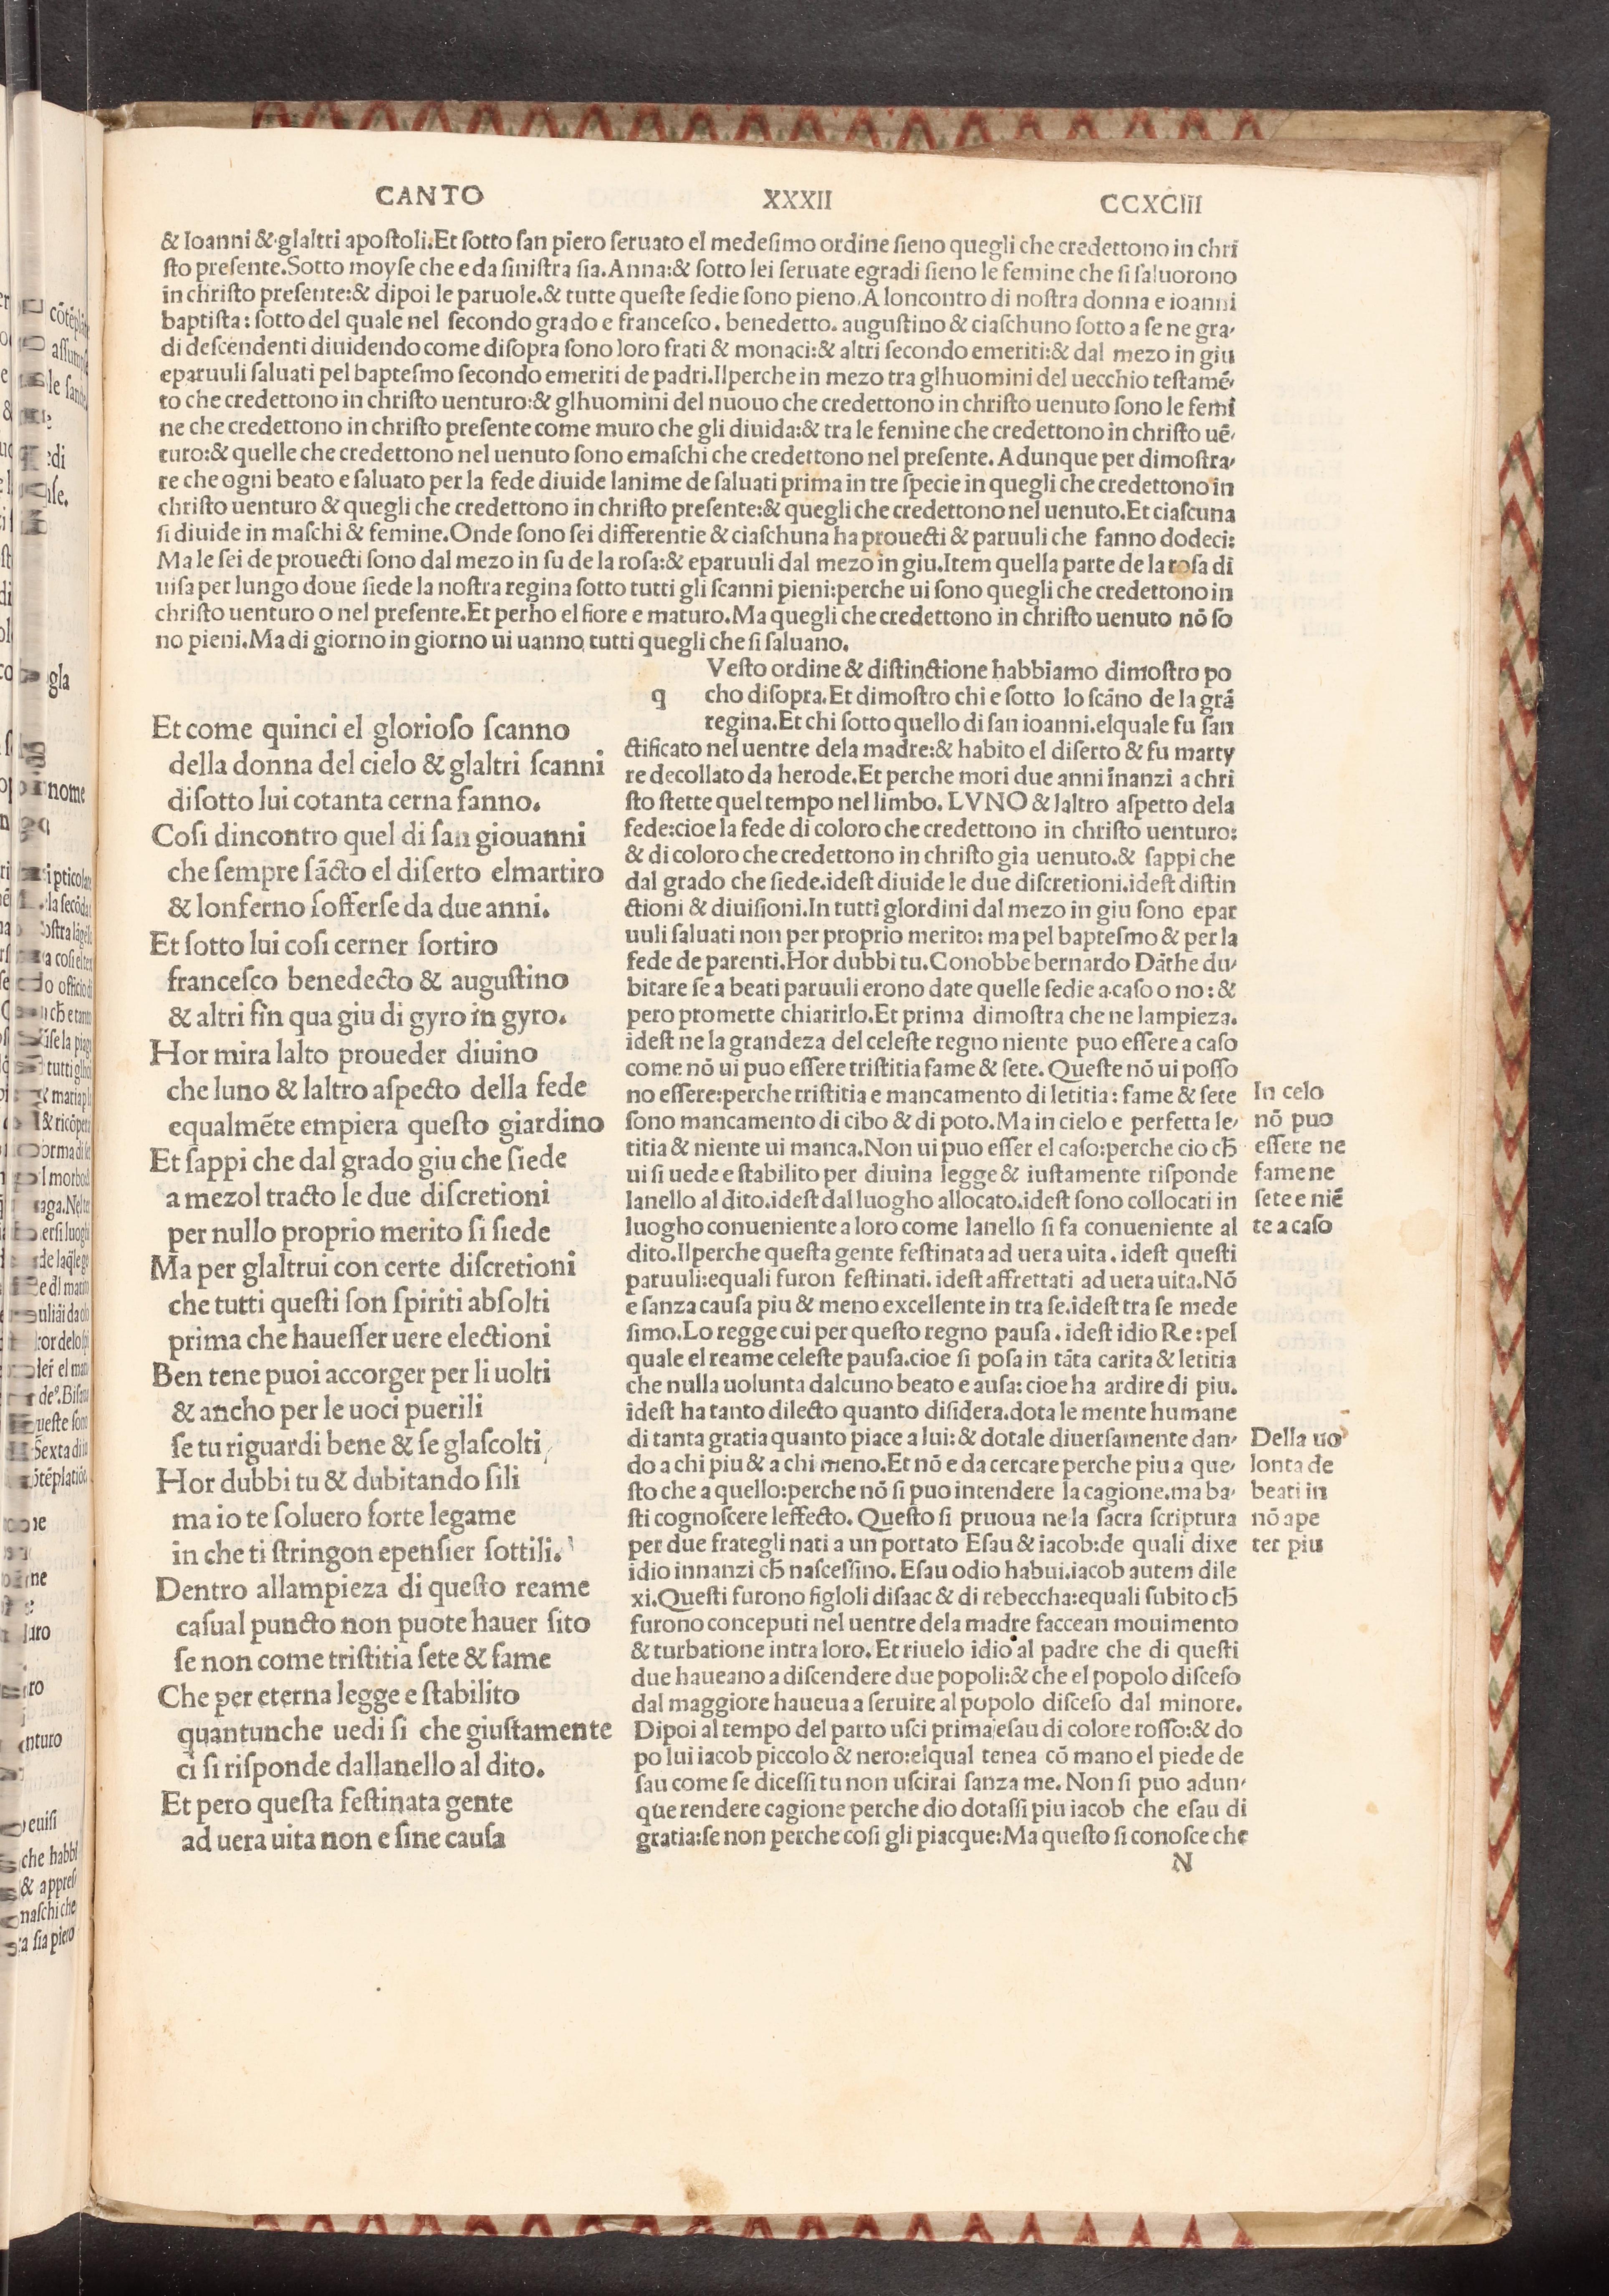 CANTO XXXII CCXCIII
& Ioanni & glaltri apoſtoli.Et ſotto ſan piero ſeruato el medeſimo ordine ſieno quegli che credettono in chrī
ſto preſente.Sotto moyſe che e da ſiniſtra ſia.Anna:& ſotto lei ſeruate egradi ſieno le femine che ſi ſaluorono
in chriſto preſente:& dipoi le paruole.& tutte queſte ſedie ſono pieno.A loncontro di noſtra donna e ioanni
baptiſta: ſotto del quale nel ſecondo grado e franceſco. benedetto. auguſtino & ciaſchuno ſotto a ſe ne gra-
di deſcendenti diuidendo come diſopra ſono loro frati & monaci:& altri ſecondo emeriti:& dal mezo in giu
eparuuli ſaluati pel bapteſmo ſecondo emeriti de padri.Ilperche in mezo tra glhuomini del uecchio teſtamē-
to che credettono in chriſto uenturo:& glhuomini del nuouo che credettono in chriſto uenuto ſono le femi
ne che credettono in chriſto preſente come muro che gli diuida:& tra le femine che credettono in chriſto uē-
turo:& quelle che credettono nel uenuto ſono emaſchi che credettono nel preſente. Adunque per dimoſtra-
re che ogni beato e ſaluato per la fede diuide lanime de ſaluati prima in tre ſpecie in quegli che credettono in
chriſto uenturo & quegli che credettono in chriſto preſente:& quegli che credettono nel uenuto.Et ciaſcuna
ſi diuide in maſchi & femine.Onde ſono ſei differentie & ciaſchuna ha prouecti & paruuli che fanno dodeci:
Ma le ſei de prouecti ſono dal mezo in ſu de la roſa:& eparuuli dal mezo in giu.Item quella parte de la roſa di
uiſa per lungo doue ſiede la noſtra regina ſotto tutti gli ſcanni pieni:perche ui ſono quegli che credettono in
chriſto uenturo o nel preſente.Et perho el fiore e maturo.Ma quegli che credettono in chriſto uenuto nō ſo
no pieni.Ma di giorno in giorno ui uanno tutti quegli che ſi ſaluano.
Et come quinci el glorioſo ſcanno
della donna del cielo & glaltri ſcanni
diſotto lui cotanta cerna fanno.
Coſi dincontro quel di ſan giouanni
che ſempre ſācto el diſerto elmartiro
& lonferno ſofferſe da due anni.
Et ſotto lui coſi cerner ſortiro
franceſco benedecto & auguſtino
& altri ſin qua giu di gyro in gyro.
Hor mira lalto proueder diuino
che luno & laltro aſpecto della fede
equalmēte empiera queſto giardino
Et ſappi che dal grado giu che ſiede
a mezol tracto le due diſcretioni
per nullo proprio merito ſi ſiede
Ma per glaltrui con certe diſcretioni
che tutti queſti ſon ſpiriti abſolti
prima che haueſſer uere electioni
Ben tene puoi accorger per li uolti
& ancho per le uoci puerili
ſe tu riguardi bene & ſe glaſcolti
Hor dubbi tu & dubitando ſili
ma io te ſoluero forte legame
in che ti ſtringon epenſier ſottili.
Dentro allampieza di queſto reame
caſual puncto non puote hauer ſito
ſe non come triſtitia ſete & fame
Che per eterna legge e ſtabilito
quantunche uedi ſi che giuſtamente
ci ſi riſponde dallanello al dito.
Et pero queſta feſtinata gente
ad uera uita non e ſine cauſa
Veſto ordine & diſtinctione habbiamo dimoſtro po
q cho diſopra.Et dimoſtro chi e ſotto lo ſcāno de la grā
regina.Et chi ſotto quello di ſan ioanni.elquale fu ſan
ctificato nel uentre dela madre:& habito el diſerto & fu marty
re decollato da herode.Et perche mori due anni īnanzi a chri
ſto ſtette quel tempo nel limbo. LVNO & laltro aſpetto dela
fede:cioe la fede di coloro che credettono in chriſto uenturo:
& di coloro che credettono in chriſto gia uenuto.& ſappi che
dal grado che ſiede.ideſt diuide le due diſcretioni.ideſt diſtin
ctioni & diuiſioni.In tutti glordini dal mezo in giu ſono epar
uuli ſaluati non per proprio merito: ma pel bapteſmo & per la
fede de parenti.Hor dubbi tu.Conobbe bernardo Dāthe du-
bitare ſe a beati paruuli erono date quelle ſedie a caſo o no: &
pero promette chiarirlo.Et prima dimoſtra che ne lampieza.
ideſt ne la grandeza del celeſte regno niente puo eſſere a caſo
come nō ui puo eſſere triſtitia fame & ſete. Queſte nō ui poſſo
no eſſere:perche triſtitia e mancamento di letitia: fame & ſete
ſono mancamento di cibo & di poto. Ma in cielo e perfetta le-
titia & niente ui manca.Non ui puo eſſer el caſo:perche cio cħ
ui ſi uede e ſtabilito per diuina legge & iuſtamente riſponde
lanello al dito.ideſt dal luogho allocato.ideſt ſono collocati in
luogho conueniente a loro come lanello ſi fa conueniente al
dito.Ilperche queſta gente feſtinata ad uera uita . ideſt queſti
paruuli:equali furon feſtinati. ideſt affrettati ad uera uita.Nō
e ſanza cauſa piu & meno excellente in tra ſe.ideſt tra ſe mede
ſimo.Lo regge cui per queſto regno pauſa . ideſt idio Re: pel
quale el reame celeſte pauſa.cioe ſi poſa in tāta carita & letitia
che nulla uolunta dalcuno beato e auſa: cioe ha ardire di piu.
ideſt ha tanto dilecto quanto diſidera.dota le mente humane
di tanta gratia quanto piace a lui:& dotale diuerſamente dan-
do a chi piu & a chi meno.Et nō e da cercare perche piu a que-
ſto che a quello:perche nō ſi puo intendere la cagione.ma ba-
ſti cognoſcere leffecto. Queſto ſi pruoua ne la ſacra ſcriptura
per due frategli nati a un portato Eſau & iacob:de quali dixe
idio innanzi cħ naſceſſino. Eſau odio habui.iacob autem dile
xi.Queſti furono figloli diſaac & di rebeccha:equali ſubito cħ
furono conceputi nel uentre dela madre faccean mouimento
& turbatione intra loro. Et riuelo idio al padre che di queſti
due haueano a diſcendere due popoli:& che el popolo diſceſo
dal maggiore haueua a ſeruire al popolo diſceſo dal minore.
Dipoi al tempo del parto uſci prima eſau di colore roſſo:& do
po lui iacob piccolo & nero:elqual tenea cō mano el piede de
ſau come ſe diceſſi tu non uſcirai ſanza me. Non ſi puo adun-
que rendere cagione perche dio dotaſſi piu iacob che eſau di
gratia:ſe non perche coſi gli piacque:Ma queſto ſi conoſce che
N
In celo
nō puo
eſſere ne
fame ne
ſete e niē
te a caſo
Della uo
lonta de
beati in
nō ape
ter piu